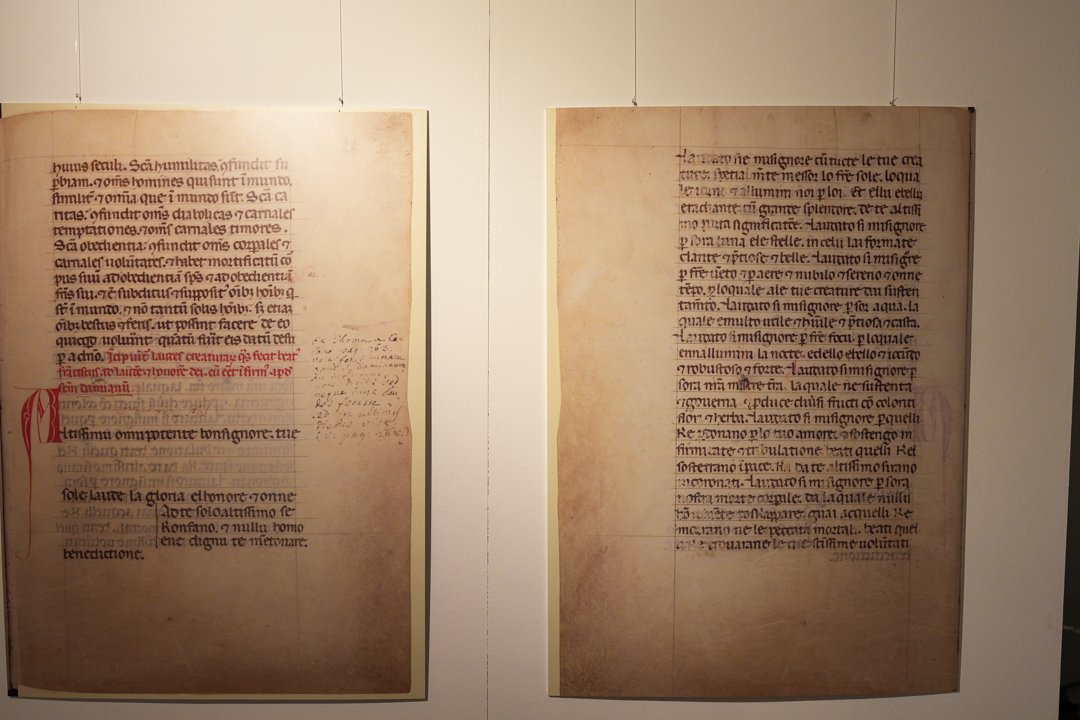 huius seculi. Scā humilitas ꝯfundit su
ꝑbiam. ⁊ om̄s homines qui sunt ī mundo.
similit̄ ⁊ om̄ia que ī mundo sūt. Scā ca
ritas. ꝯfundit om̄s diabolicas ⁊ carnales
temptationes. ⁊ om̄s carnales timores.
Scā obedientia ꝯfundit om̄s corꝑales ⁊
carnales volūtates. ⁊ habet mortificatū co
pus suū ad obedientiā sp̄s ⁊ ad obedientiā
fr̄is sui. ⁊ ē subditus ⁊ supposit oībꝫ hoībꝫ q
st̄ ī mundo. ⁊ nō tantū solis hoībꝫ. sꝫ etiaꝫ
oībꝫ bestiis ⁊ feris. ut possint facere de eo
quicqd voluīnt quātū fuīt eis datū desu
ꝑ a dn̄o. Incip̄ūt laudes creaturaꝝ q̄s fecit beat
frāciscus ad laudē ⁊ honorē dei. cū eēt ifirm̄ apd
sc̄m damianū.
Altissimu omnipotente bonsignore. tue
sole laude la gloria elhonore ⁊ onne
Ad te solo altissimo se
Konfano. ⁊ nullu homo
ene dignu te mētouare.
benedictione.
Laudato sie misignore cū tucte le tue crea
ture. spetialm̄te messor lo frē sole. loqua
le iorno ⁊ allumini noi ꝑ loi. Et ellu ebellu
eradiante cū grande splendore. de te altissi
mo porta significatōe. Laudato si misignore
ꝑ sora luna ele stelle. in celu lai formate
clarite ⁊ p̄tiose ⁊ belle. Laudato si misigr̄e
ꝑ frē uēto ⁊ ꝑ aere ⁊ nubilo ⁊ sereno ⁊ onne
tēpo. ꝑ loquale ale tue creature dai susten
tamēto. Laudato si misignore ꝑ sor aqua. la
quale emulto utile ⁊ hūile ⁊ p̄tiosa ⁊ casta.
Laudato si misignore ꝑ frē focu. ꝑ loquale
ennallumini la nocte. edello ebello ⁊ iocūdo
⁊ robustoso ⁊ forte. Laudato si misignore ꝑ
sora nr̄a matre trā. la quale ne sustenta
⁊ gouerna. ⁊ ꝓduce diūsi fructi cō coloriti
flori ⁊ herba. Laudato si misignore ꝑ quelli
ke ꝑdonano ꝑ lo tuo amore. ⁊ sostengo in
firmitate ⁊ tribulatione beati quelli kel
sosterrano ī pace. ka da te altissimo sirano
incoronati. Laudato si misignore ꝑ sora
nostra morte corꝑale. da la quale nullu
hō uiuēte poskappare. guai acquelli ke
morrano ne le peccata mortali. beati quel
li ke trouarane le tue sc̄issime voluntati